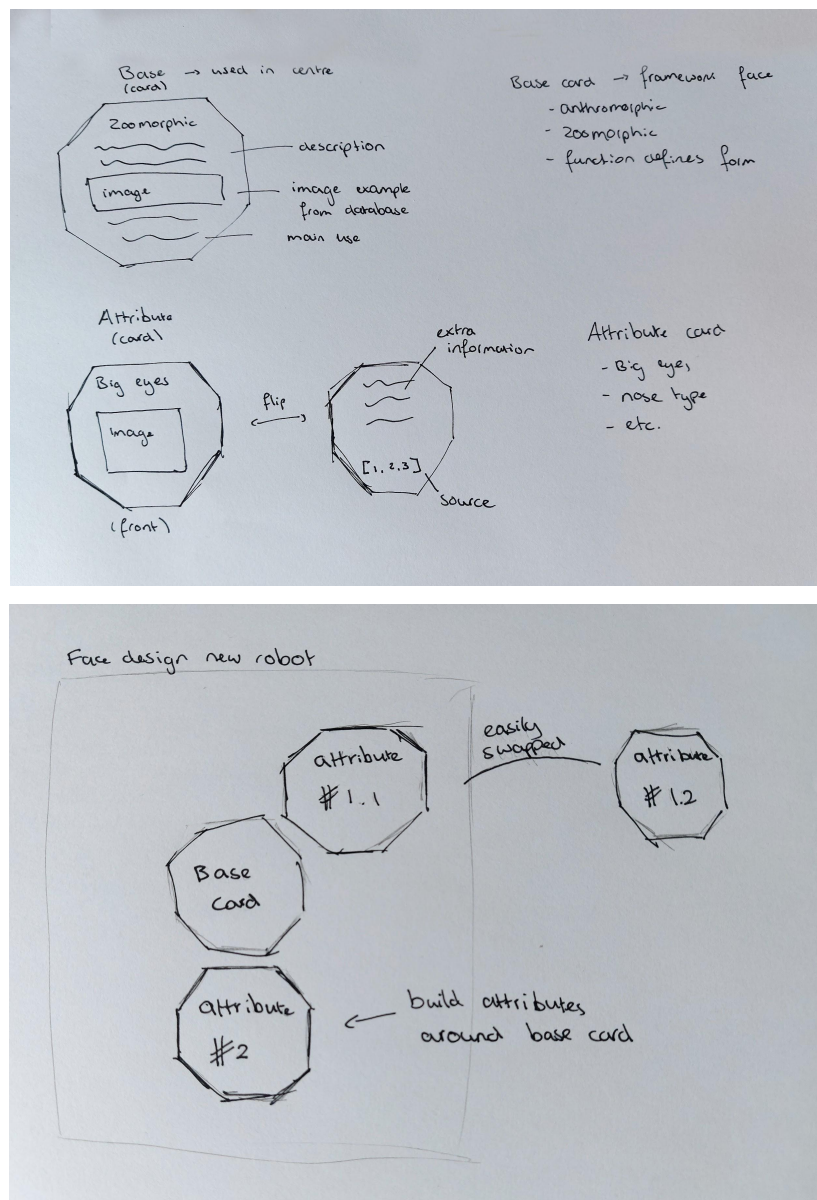 Base → used in centre
(card)
Zoomorphic
description
image
image example
from database
main use
Base card → framework face
- anthromorphic
- Zoomorphic
- function defines form
Attribute
(card)
Big eyes
Image
(front)
flip
extra
information
[1,2,3]
source
Attribute card
- Big eyes
- nose type
- etc.
Face design new robot
attribute
#1.1
easily
swapped
attribute
#1.2
Base
card
attribute
#2
← build attributes
around base card